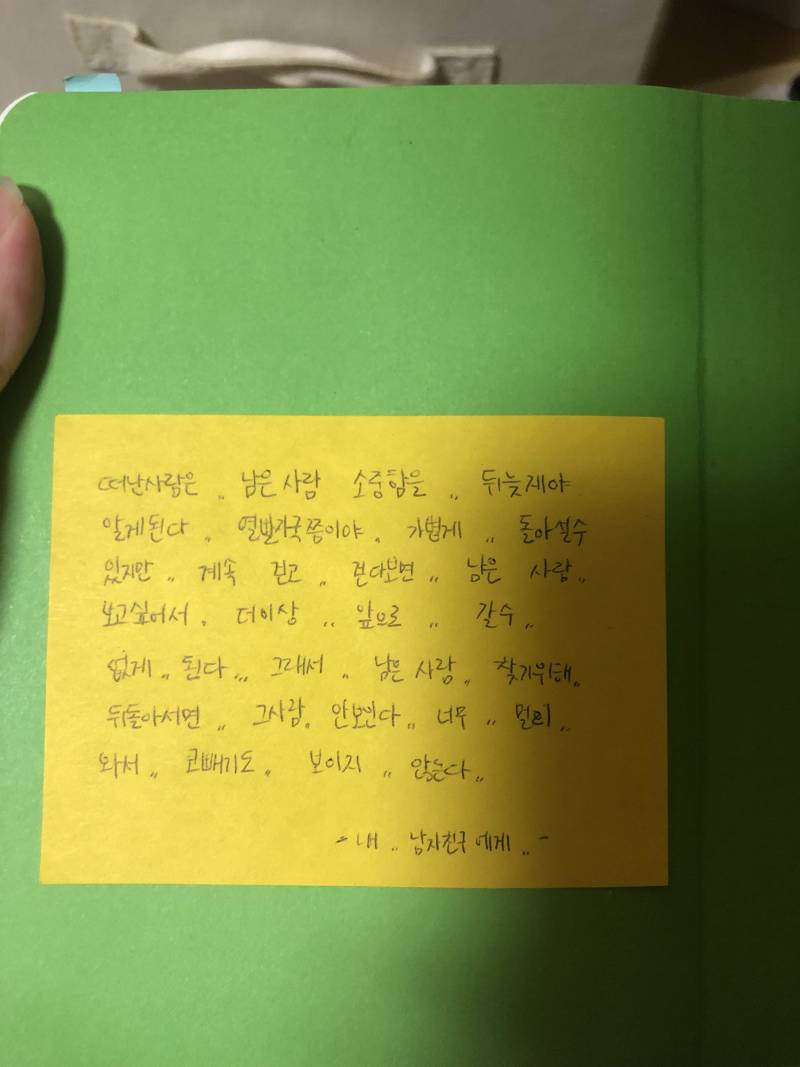 떠난사람은 ,, 남은사람 소중함을 ,, 뒤늦게야
알게된다 ,, 열발자국쯤이야 , 가볍게 ,, 돌아설수
있지만 ,, 계속 걷고 ,, 걷다보면 ,, 남은 사람 ,,
보고싶어서 , 더이상 ,, 앞으로 ,, 갈수 ,,
없게 ,, 된다 ,,, 그래서 ,, 남은 사람 ,, 찾기위해 ,,
뒤돌아서면 ,, 그사람 , 안보인다 ,, 너무 ,, 멀리 ,,
와서 ,, 코빼기도 , 보이지 ,, 않는다 ,,
- 내 ,, 남자친구에게 ,, -